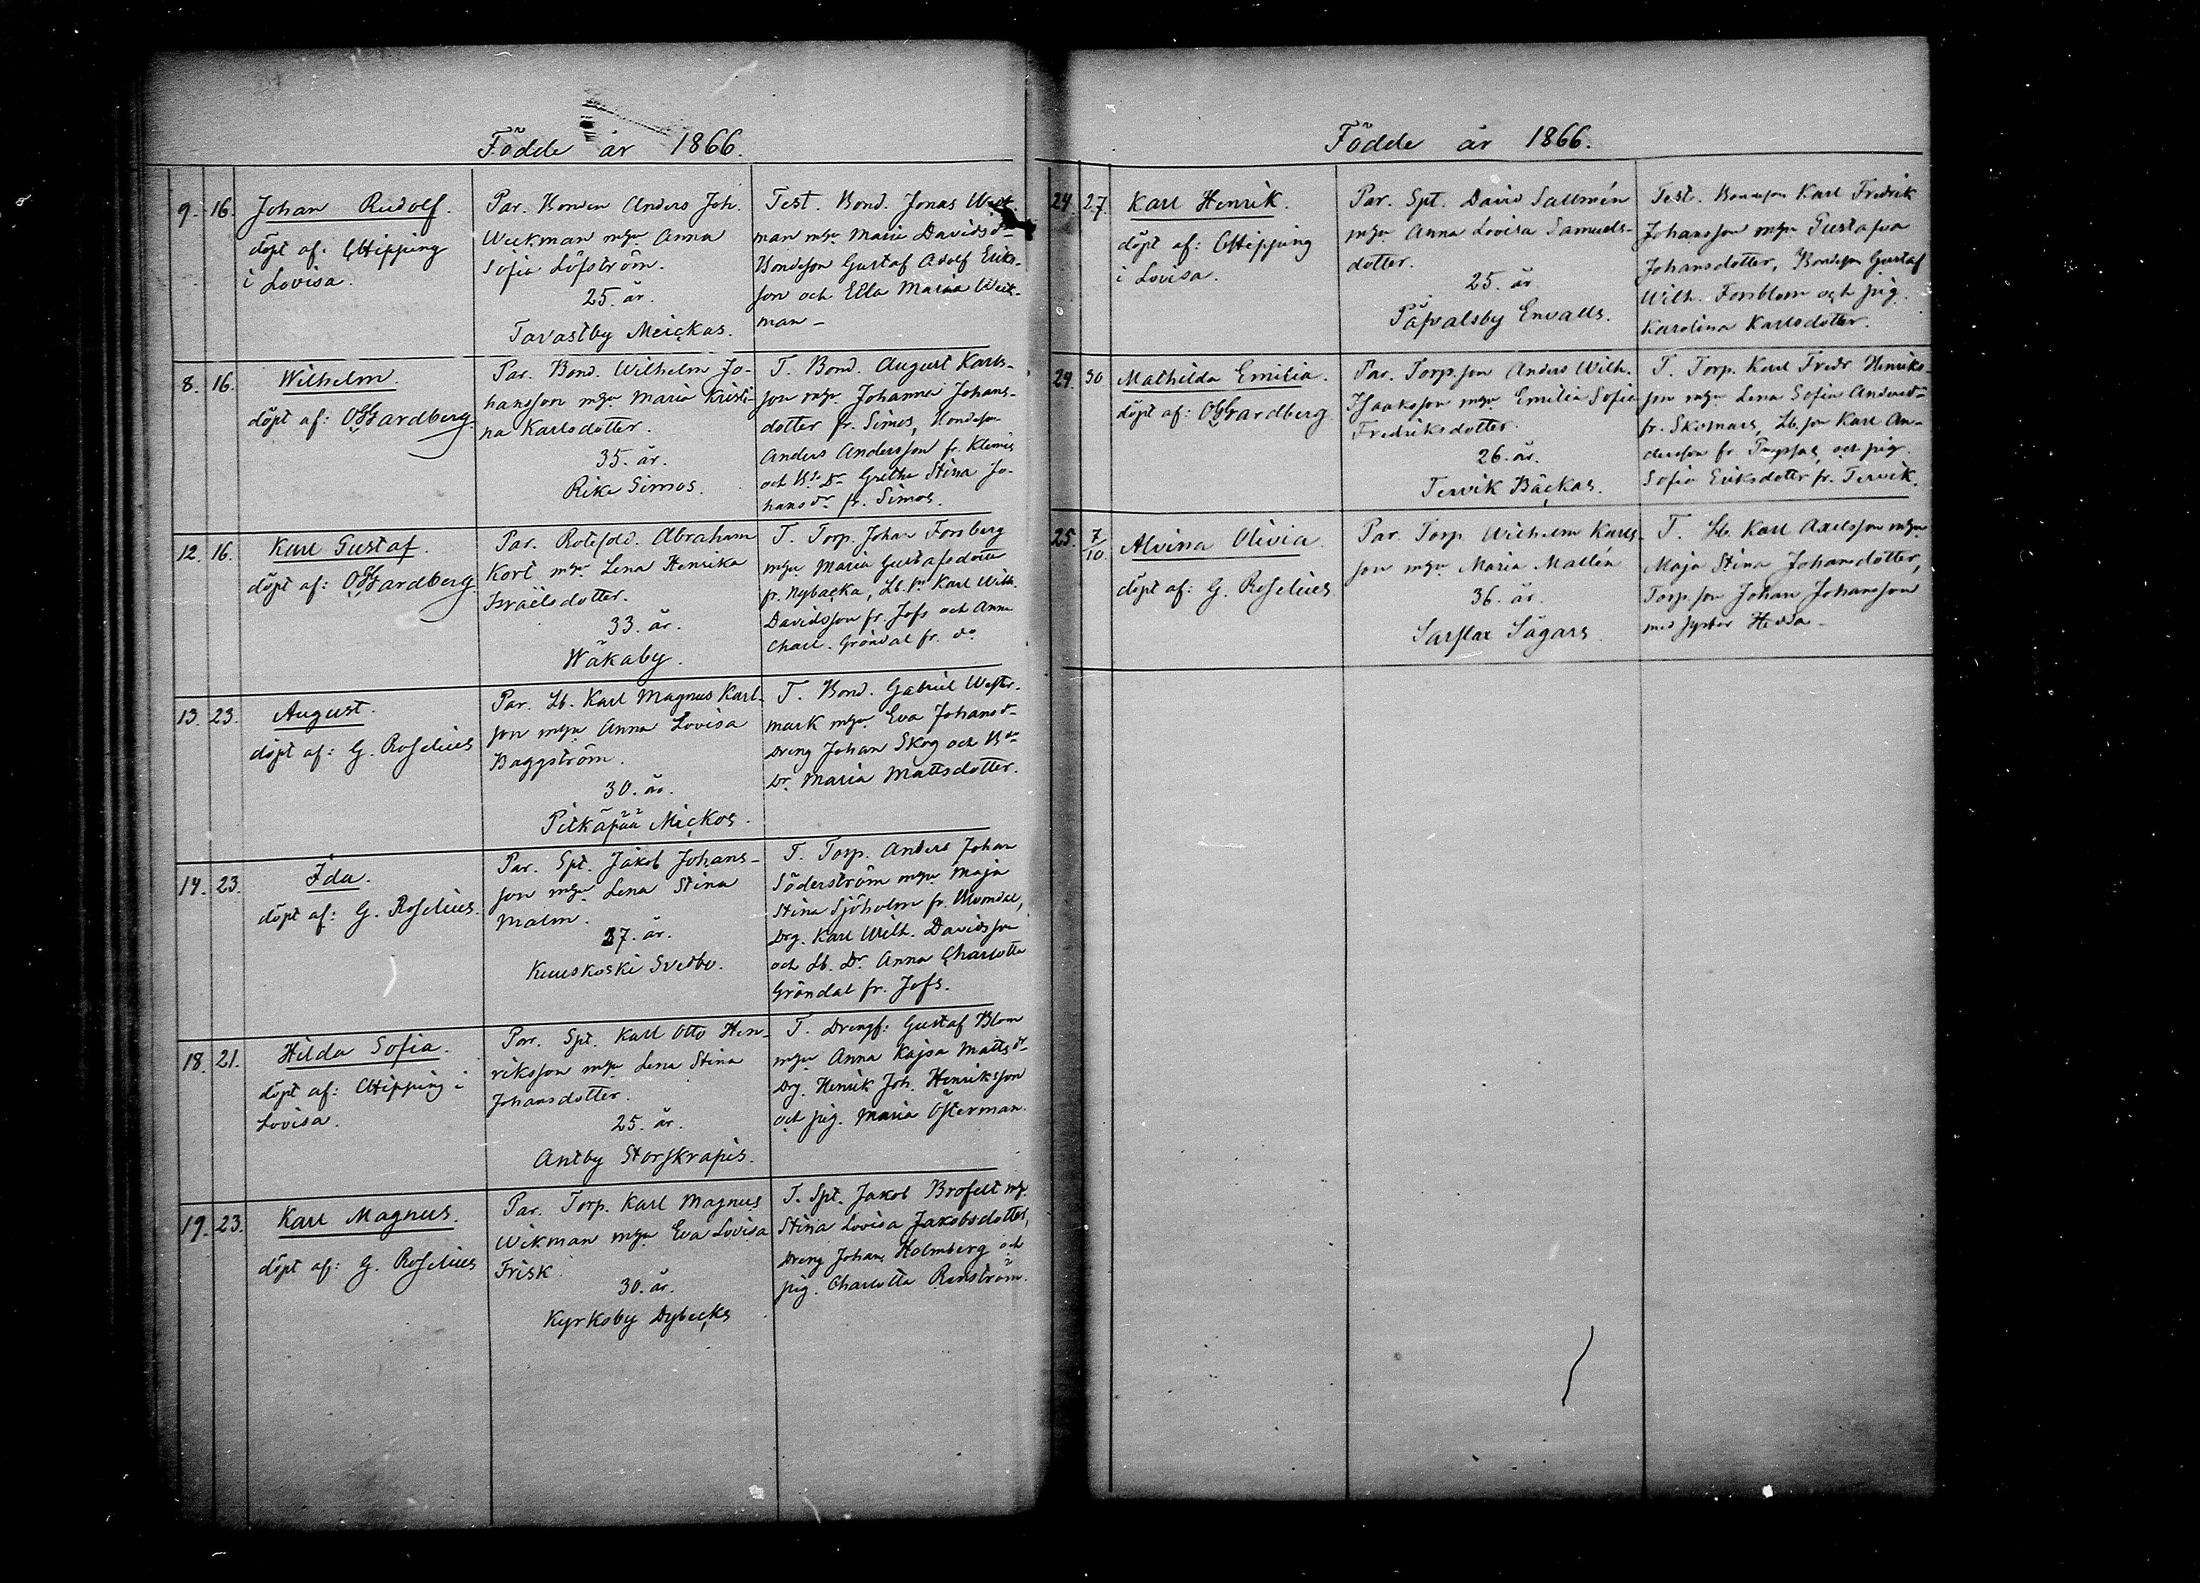 Födde år 1866.
9. 16. Johan Rudolf.
döpt af: CHipping
i Lovisa.
Par. Bonden Anders Joh.
Weckman m hu Anna
Sofia Löfström.
25. år.
Tavastby Meickas.
Test. Bond. Jonas
man m hu Maria Davidsdr
Bondeson Gustaf Adolf Eriks-
son och Ella Maria Weck-
man
8. 16. Wilhelm.
döpt af: OGGardberg
Par. Bond. Wilhelm Jo-
hansson m hu Maria Kristi-
na Karlsdotter.
35. år.
Rike Simos.
T. Bond. August Karls-
son m hu Johanna Johans-
dotter fr. Simos, Bondeson
Anders Andersson fr. Klemis
och Bde Dr Gretha Stina Jo-
hansdr fr. Simos.
12. 16. Karl Gustaf.
döpt af: OGGardberg
Par. Rotesold. Abraham
Kort m hu Lena Henrika
Israëlsdotter.
33. år.
Wåkaby.
T. Torp. Johan Forsberg
m hu Maria Gustafsdotter
fr. Nybacka, Lb. sn Karl Wilh.
Davidsson fr. Jofs och Anna
Charl. Gröndal fr. do
13. 23. August.
döpt af: G. Roselius
Par. Lb. Karl Magnus Karl-
son m hu Anna Lovisa
Baggström.
30. år.
Pitkäpää Mickos.
T. Bond. Gabriel Wester-
mark m hu Eva Johansdr
Dreng Johan Skog och Bde
Dr. Maria Mattsdotter.
14. 23. Ida.
döpt af: G. Roselius.
Par. Spt. Jakob Johans-
son m hu Lena Stina
Malm.
27. år.
Kuuskoski Svedbo.
T. Torp. Anders Johan
Söderström m hu Maja
Stina Sjöholm fr.
Drg. Karl Wilh. Davidsson
och Lb. Dr Anna Charlotta
Gröndal fr. Jofs.
18. 21. Hilda Sofia.
döpt af: CHipping i
Lovisa.
Par. Spt. Karl Otto Hen-
riksson m hu Lena Stina
Johansdotter.
25. år.
Antby Storskrapis.
T. Drengf: Gustaf Blom
m hu Anna Kajsa Mattsdr
Drg. Henrik Joh. Henriksson
och pig. Maria Österman.
19. 23. Karl Magnus.
döpt af: G. Roselius
Par. Torp. Karl Magnus
Wikman m hu Eva Lovisa
Frisk.
30. år.
Kyrkoby Dybecks
T. Spt. Jakob Brofelt m h
Stina Lovisa Jakobsdotter,
Dreng Johan Holmberg och
pig. Charlotta Renström.
Födde år 1866.
24. 27. Karl Henrik.
döpt af: CHipping
i Lovisa.
Par. Spt. David Sallmén
m hu Anna Lovisa Samuels-
dotter.
25. år
Påfvalsby Envalls.
Test. Bondeson Karl Fredrik
Johansson m hu Gustafva
Johansdotter, Bondeson Gustaf
Wilh. Forsblom och pig.
Karolina Karlsdotter.
24. 30 Mathilda Emilia.
döpt af: OGGardberg
Par. Torp.son Anders Wilh.
Isaaksson m hu Emilia Sofia
Fredriksdotter
26. år.
Tervik Bäckas.
T. Torp. Karl Fredr Henriks-
son m hu Lena Sofia Andersdr
fr. Skomars, Lb. son Karl An-
dersson fr. och pig.
Sofia Eriksdotter fr. Tervik.
25. 7/10 Alvina Olivia.
döpt af: G. Roselius
Par. Torp. Wilhelm Karls-
son m hu Maria Mallén
36. år.
Sarflax Sågars
T. Lb. Karl Axelsson m hu
Maja Stina Johansdotter,
Torp.son Johan Johansson
med syster Hedda